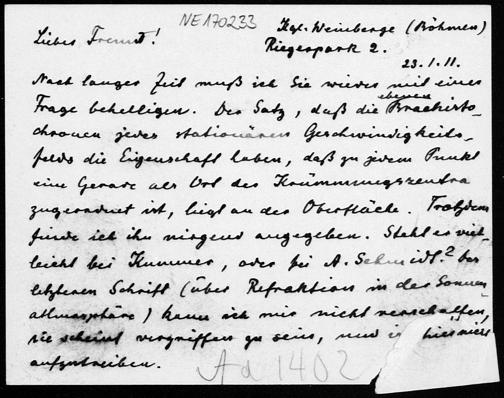 NE 170233
Kgl. Weinberge (Böhmen)
Liebes Freund!
Riegerpark 2.
23.1.11.
Nach langer Zeit muß ich Sie wieder mit einer
Frage behelligen. Der Satz, daß die ebenen Brachisto-
chronen jedes stationären Geschwindigkeits-
felds die Eigenschaft haben, daß zu jedem Punkt
eine Gerade als Ort der Krümmungszentra
zugeordnet ist, liegt an der Oberfläche. Trotzdem
finde ich ihn nirgend angegeben. Steht er viel-
leicht bei Kummer, oder bei A. Schmidt? Des
letzteren Schrift (über Refraktion in der Sonnen-
atmosphäre) kann ich mir nicht verschaffen,
sie scheint vergriffen zu sein, und hier nicht
aufzutreiben.
Ad 1402